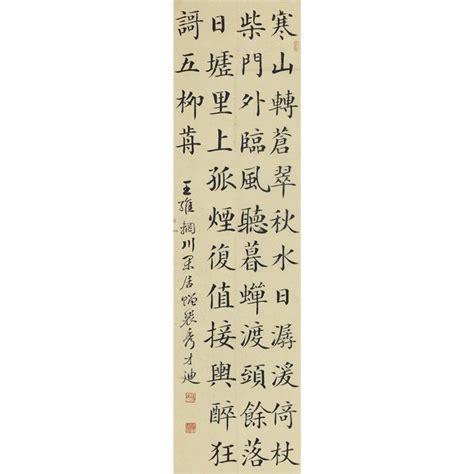 寒山轉蒼翠秋水日潺湲倚杖
柴門外臨風聽暮蟬渡頭餘落
日墟里上孤煙復值接輿醉狂
謌五柳歬
王維輞川閒居贈裴秀才迪